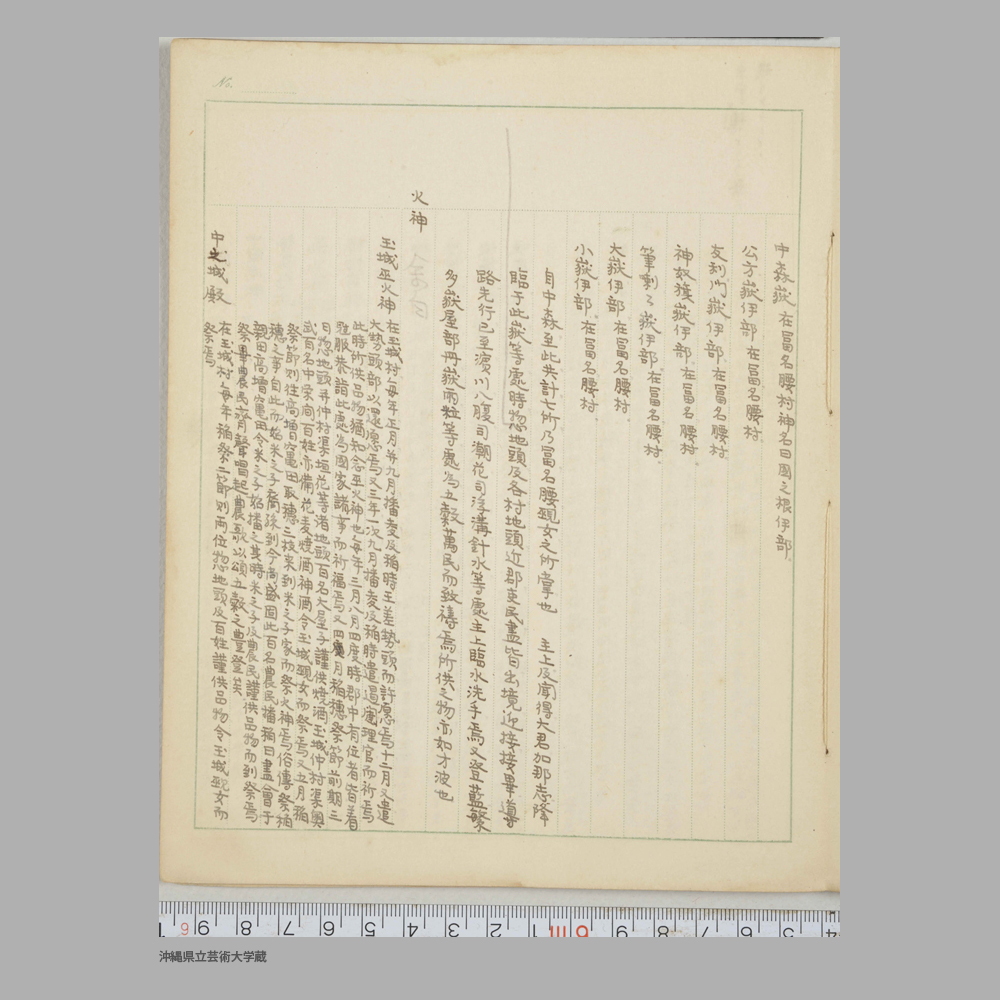 No.
中森嶽 在冨名腰村神名曰國之根伊部
公方嶽伊部 在冨名腰村
友利門嶽伊部 在冨名腰村
神奴襪嶽伊部 在冨名腰村
筆喇々嶽伊部 在冨名腰村
大嶽伊部 在冨名腰村
小嶽伊部 在冨名腰村
自中森至此共計七所乃冨名腰覡女之所掌也 主上及聞得大君加那志降
臨于此嶽等處時惣地頭及各村地頭近郡吏民盡皆出境迎接接畢導
路先行已至濱川八腹司潮花司浮溝針水等處主上臨水洗手焉又登藪
多嶽屋部丹嶽兩粒等處為五穀萬民而致禱焉所供之物亦如才波也
火神
玉城巫火神 在玉城村毎年正月并九月播麦及稲時王差勢頭而許愿焉十二月又遣
大勢頭部以還愿焉又三年一次九月播麦及稲時遣運理官而祈焉
此時所供品物猶知念巫火神也毎年三月八月四度時郡中有位者皆着
朝服恭詣此處為國家諸事而祈福焉又 月稲穂祭節前期三
日惣地頭并仲村渠垣花等渚地頭百名大屋子謹供燒酒玉城仲村渠奧
武百名中栄向百姓亦備花麦燒酒神酒令玉城覡女而祭焉又五月稲
祭節則往高増冨田取穂三枝来到米之子家而祭火神焉俗傳祭稲
穂之事自此而始米之子裔孫到今尚盛因此百名農民播稲日盡會于
親田高増冨田令米之子始播之其時米之子及農民謹供品物而到祭焉
祭畢農民齊聲唱起農歌以頌五穀之豊登矣
中之城殿 在玉城村毎年稲祭二節則兩位惣地頭及百姓謹供品物令玉城覡女而
祭焉
9 8 7 6 5 4 3 2 1 6m 9 8 7 6 5 4
沖縄県立芸術大学蔵